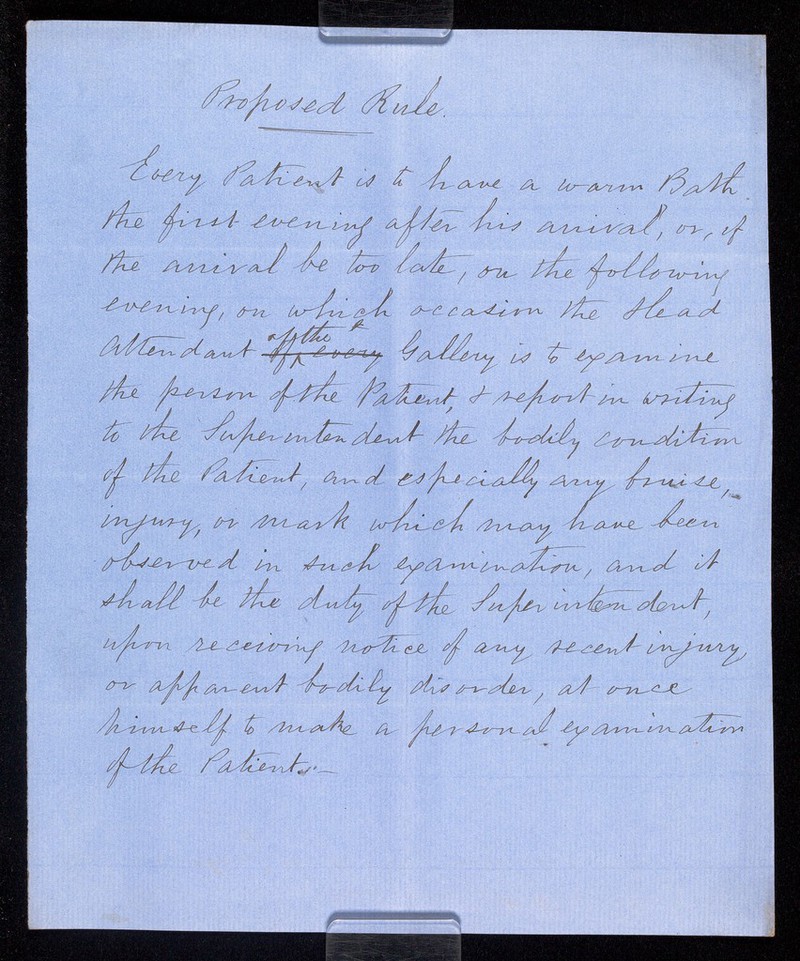 Proposed Rule.
Every Patient is to have a warm Bath
the first evening after his arrival, or, if
the arrival be too late, on the following
evening, on which occasion the Head
of the
Attendant of every Gallery is to examine
the person of the Patient, & report in writing
to the Superintendent the bodily condition
of the Patient, and especially any bruise,
injury, or mark which may have been
observed in such examination, and it
shall be the duty of the Superintendent,
upon receiving notice of any recent injury
or apparent bodily disorder, at once
himself to make a personal examination
of the Patient.—